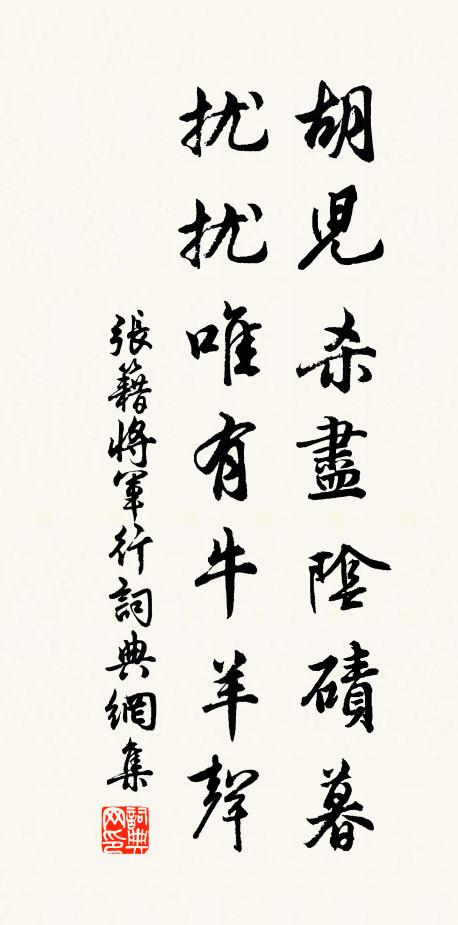 胡兒杀盡陰磧暮
扰扰唯有牛羊聲
張籍將軍行詞典網集
詞典网印